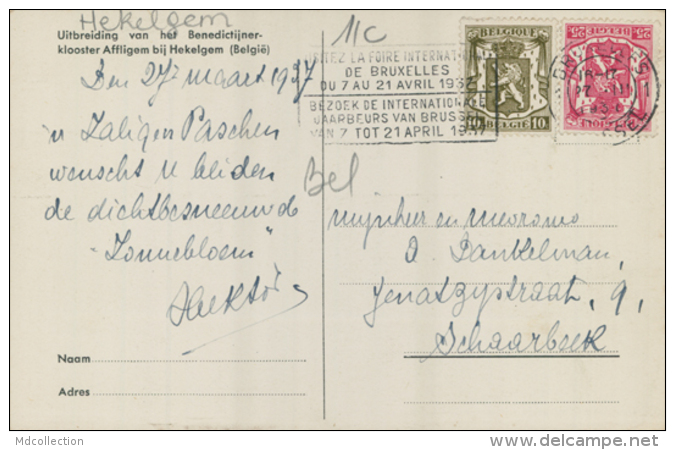 Hekelgem
Uitbreiding van het Benedictijner-
klooster Affligem bij Hekelgem (België)
Den 27 maart 1937
'n Zaligen Paschen
wenscht u beiden
de dichtbesneeuwde
"Zonnebloem"
Naam
Adres
11c
Bel
VISITEZ LA FOIRE INTERNAT
DE BRUXELLES
DU 7 AU 21 AVRIL 1937
BEZOEK DE INTERNATIONALE
JAARBEURS VAN BRUSSEL
VAN 7 TOT 21 APRIL 1937
BELGIQUE
10 BELGIË 10
25 BELGIË 25
BELGIQUE
Mijnheer en Mevrouw
Dankelman,
Jenatzystraat, 9,
Schaarbeek
Mdcollection
delcampe.net